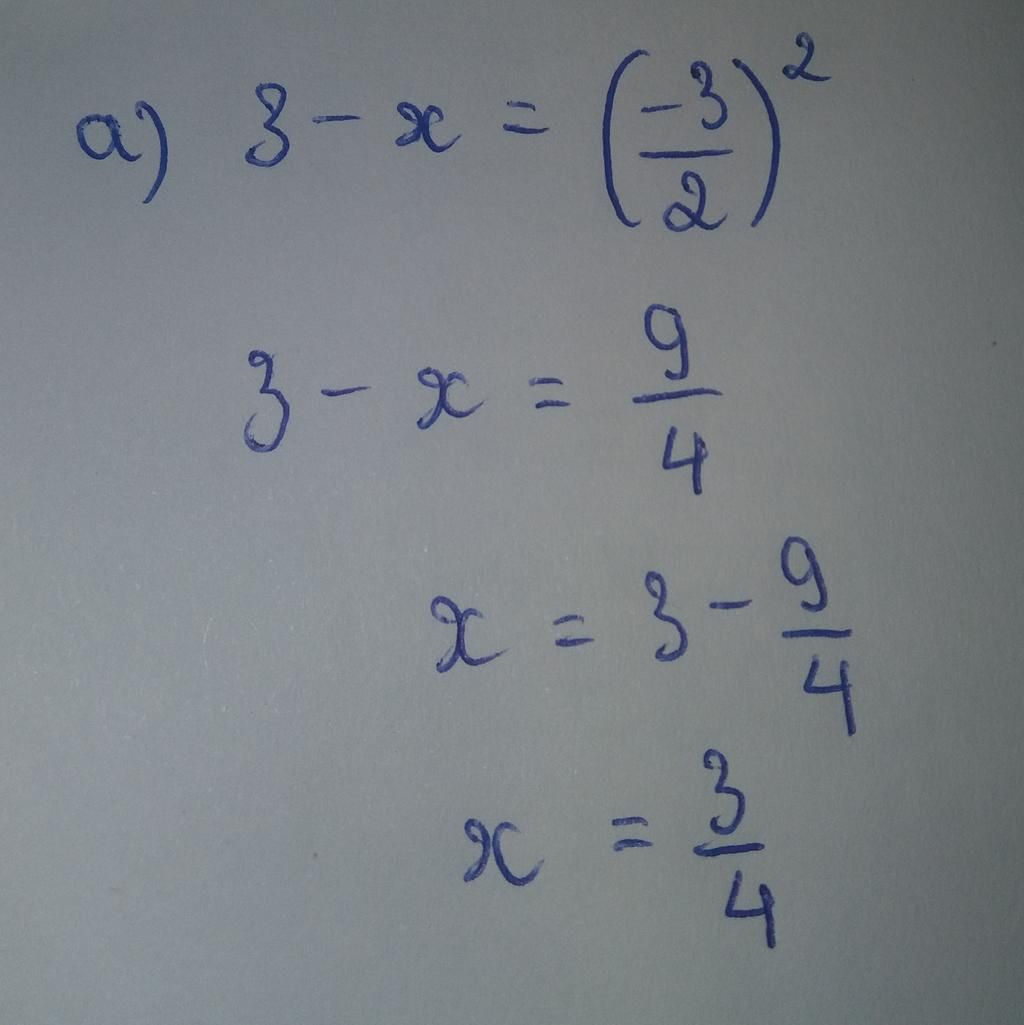 a) 3 - x = (-3/2)²
3 - x = 9/4
x = 3 - 9/4
x = 3/4